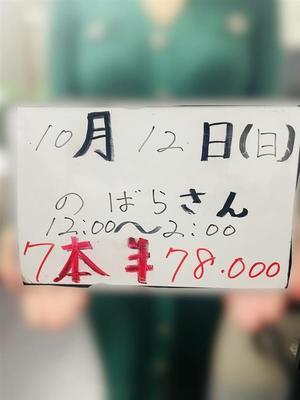 10月12日(日)
のばらさん
12:00〜2:00
7本¥78.000